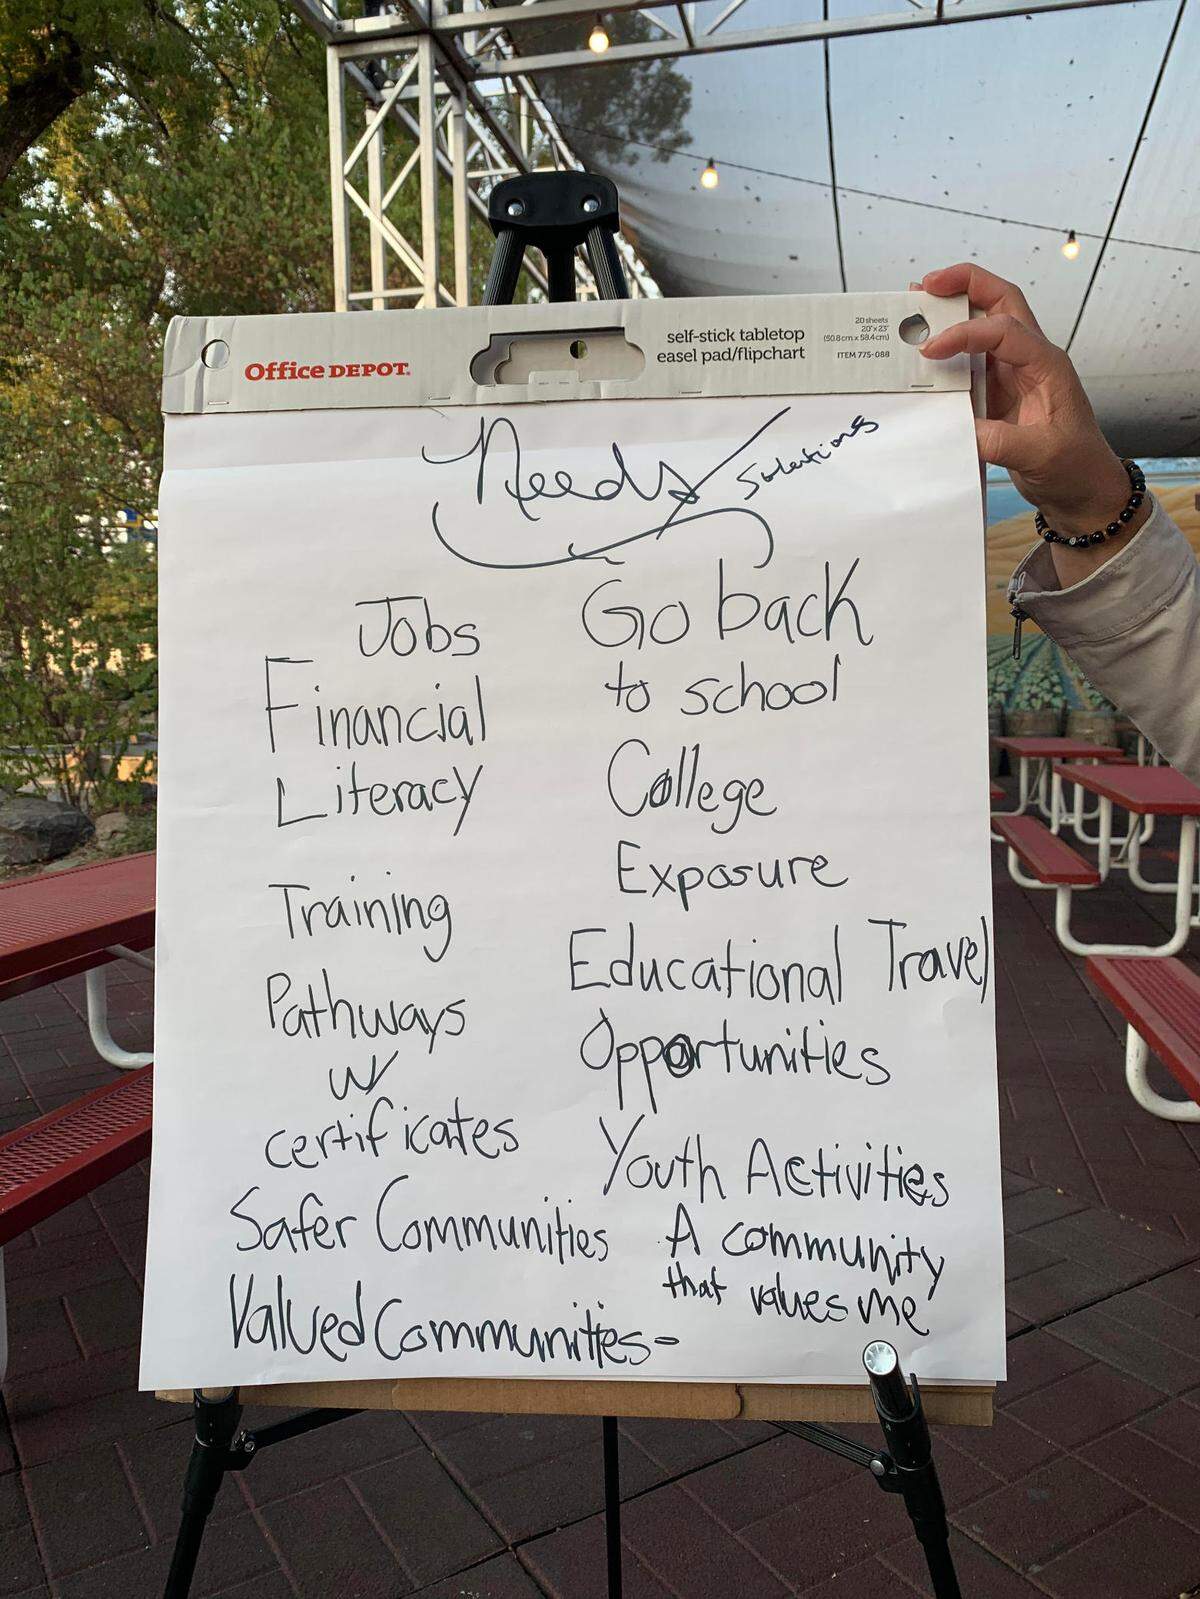 Office DEPOT.
self-stick tabletop
easel pad/flipchart
20 sheets
20" x 23"
(50.8 cm x 58.4 cm)
ITEM 775-088
Needs/Solutions
Jobs
Financial
Literacy
Training
Pathways
w/
certificates
Safer Communities
Valued Communities-
Go back
to school
College
Exposure
Educational Travel
Opportunities
Youth Activities
A community
that values me